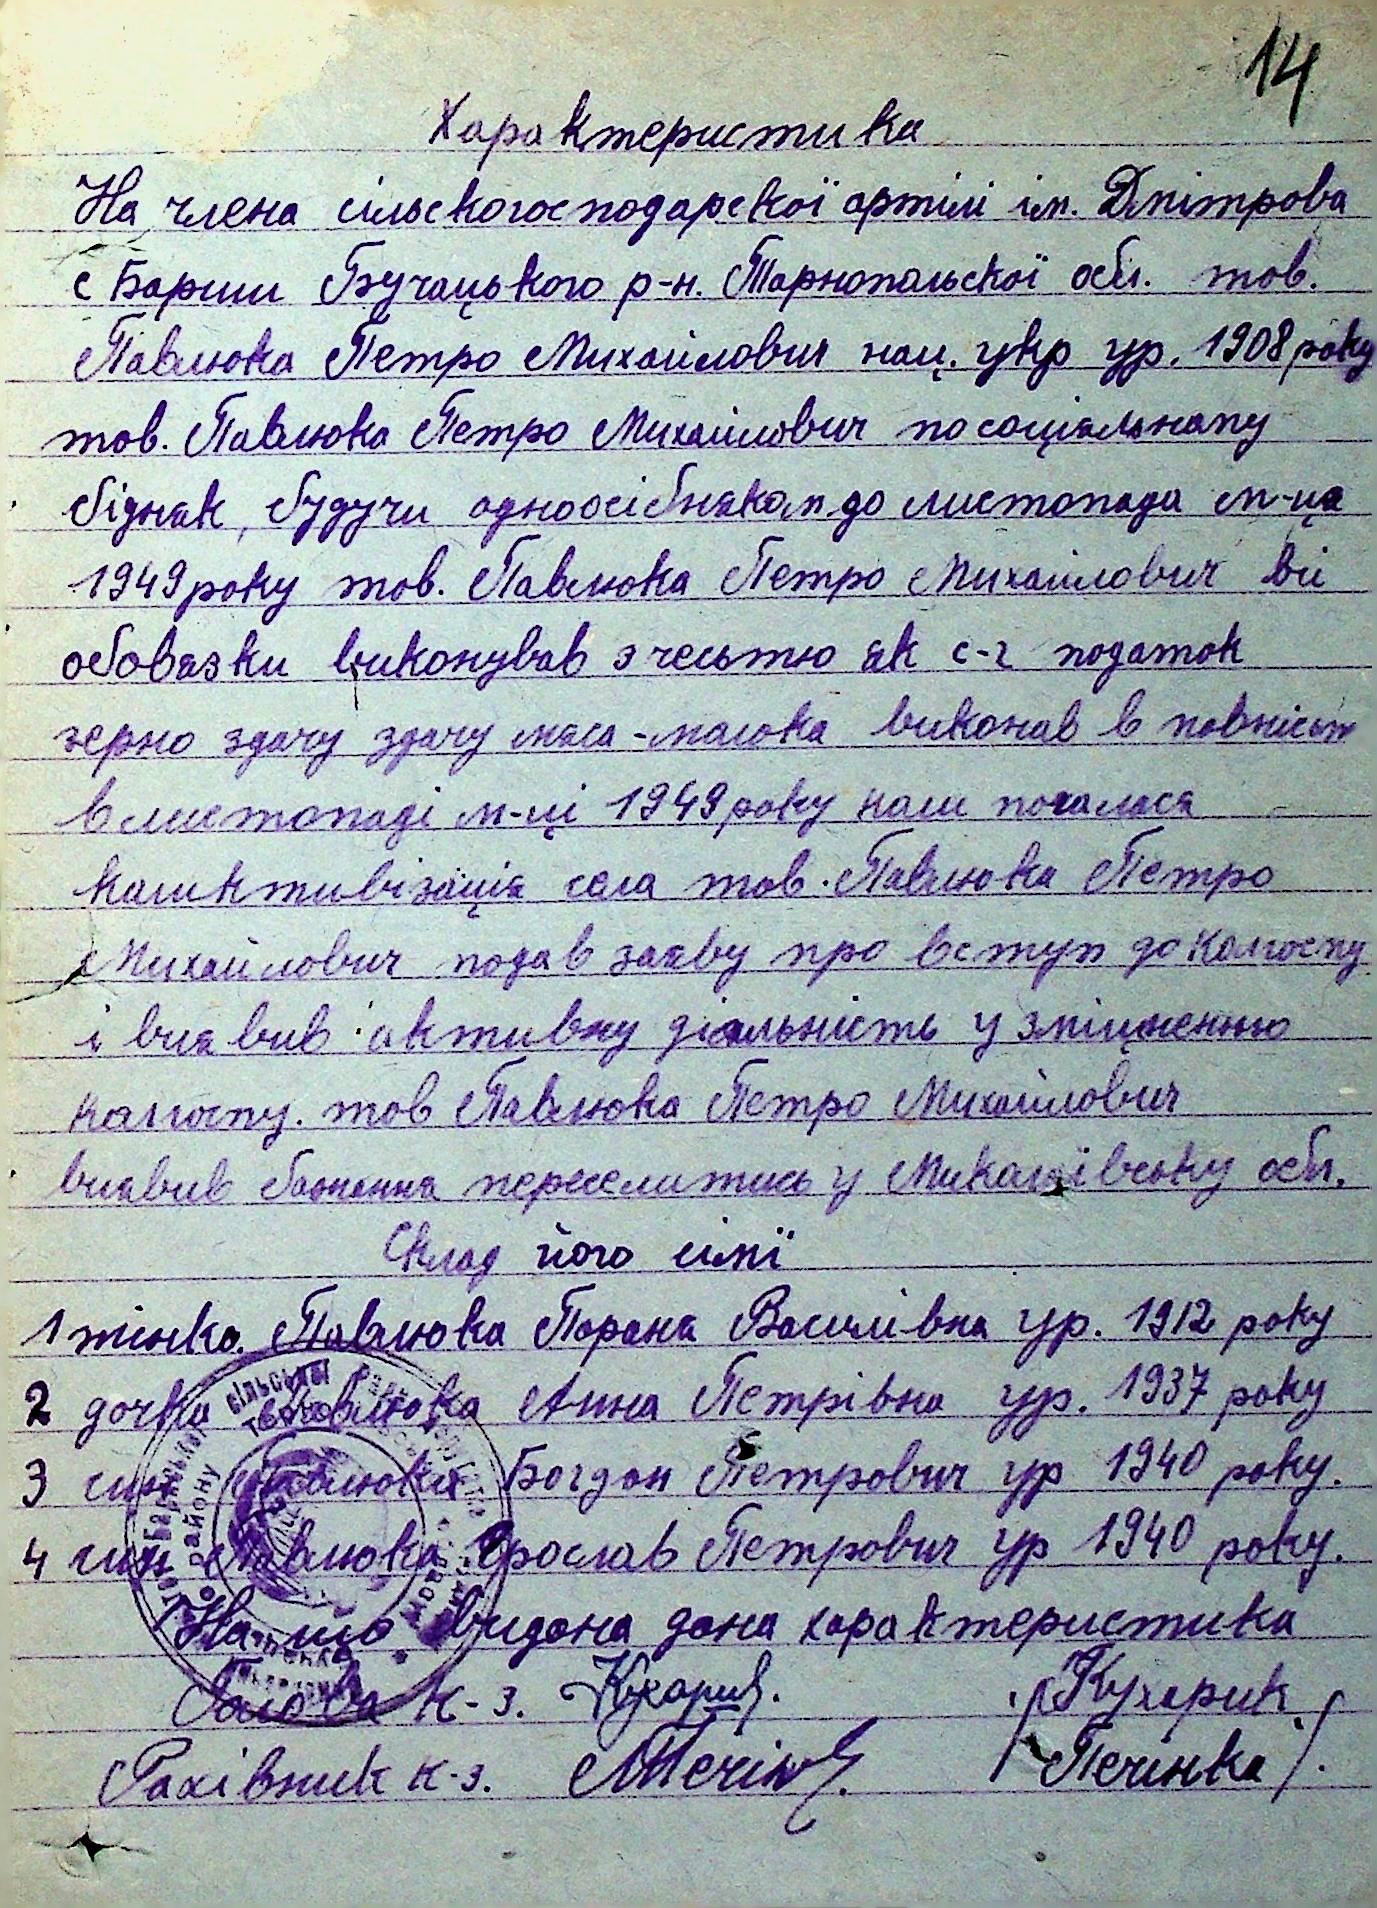 14
Характеристика
На члена сільскогосподарскої артілі ім. Дмітрова
с Бариш Бучацького р-н. Тарнопольскої обл. тов.
Павлюка Петро Михайлович нац. укр ур. 1908 року
тов. Павлюка Петро Михайлович по соціяльнаму
бідняк, будучи одноосібняком до листопада м-ця
1949 року тов. Павлюка Петро Михайлович всі
обовязки виконував з честью як с-г податок
зерно здачу здачу мяса-малока виконав в повність
в листопаді м-ці 1949 року коли почалася
каликтивізація села тов. Павлюка Петро
Михайлович подав заяву про вступ до колгоспу
і виявив активну діяльність у зміцненню
колгоспу. тов Павлюка Петро Михайлович
виявив бажання переселитись у Миколаївську обл.
Склад його сімї
1 жінка. Павлюка Параня Василівна ур. 1912 року
2 дочка Павлюка Анна Петрівна ур. 1937 року
3 син Павлюка Богдан Петрович ур 1940 року.
4 син Павлюка Ярослав Петрович ур 1940 року.
На що видона дана характеристика
Голова к-з. Кухарик. /Кухарик/
Рахівник к-з. МПечінк /Печінка/.
сільської
району